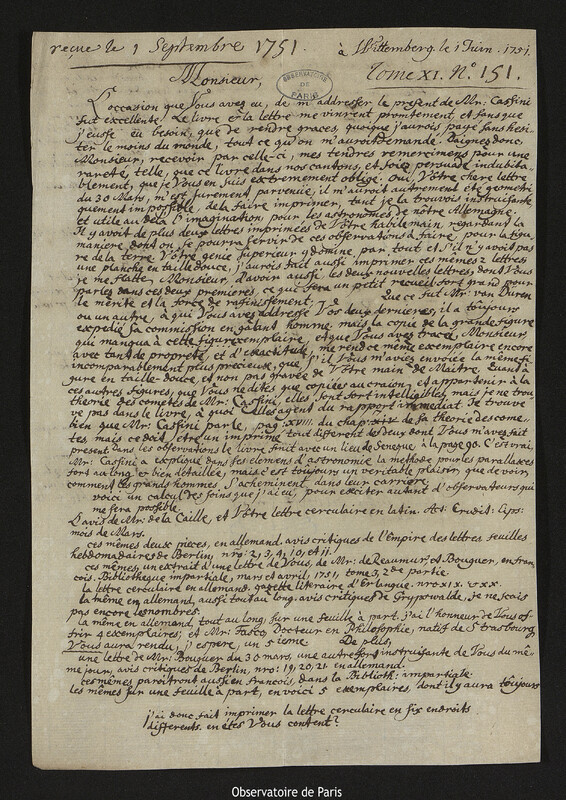 reçue le 1 Septembre 1751.
à Wittemberg. le 1 Juin. 1751.
Tome XI. N.º 151.
Monsieur,
OBSERVATOIRE DE PARIS
L'occasion que Vous avez eu, de m'addresser le present de Mr: Cassini
fut excellente. Le livre et la lettre me vinrent promtement, et sans que
j'eusse eu besoin, que de rendre graces, quoique j'aurois payé sans hesi-
ter le moins du monde, tout ce qu'on m'auroit demandé. Daignez donc,
Monsieur, recevoir par celle-ci, mes tendres remercimens pour une
rareté, telle, que ce livre dans nos cantons, et soiez persuadé indubita-
blement, que je Vous en suis extremement obligé. Oui, Vôtre chere lettre
du 30 Mars, m'est surement parvenüe, il m'auroit autrement été geometri
quement impossible, de la faire imprimer, tant je la trouvois instruisante
et utile au delà l'imagination, pour les astronomes de nôtre Allemagne.
Il y avoit de plus deux lettres imprimées de Vôtre habile main, regardant la
maniere, dont on se pourra servir de ces observations à faire, pour la figu
re de la terre. Vôtre genie superieur y domine, par tout et s'il n'y avoit pas
une planche en taille douce, j'aurois fait aussi imprimer ces mêmes 2 lettres
je me flatte, Monsieur, d'avoir aussi les deux nouvelles lettres, dont Vous
parlez dans ces deux premieres, ce que sera un petit recueil fort grand pour
le merite et la force de raffinissement.
Que ce fut Mr: van Duren
ou un autre, à qui Vous avez addressé Vos deux dernieres, il a toujours
expedié sa commission en galant homme. mais la copie de la grande figure
qui manqua à cette figure exemplaire, et que Vous avez tracé, Monsieur,
avec tant de propreté, et d'exactitude, me rend ce même exemplaire encore
incomparablement plus precieux, que, s'il Vous m'aviez envoiée la même fi-
gure en taille-douce, et non pas gravée de Vôtre main de Maitre. Quand à
ces autres figures, que Vous ne dites que copiées au craion, et appartenir à la
theorie des cometes de Mr: Cassini, elles sont fort intelligibles, mais je ne trou
ve pas dans le livre, à quoi elles agent du rapport immediat. je trouve
bien que Mr: Cassini parle, pag: XVIII du chap: IX de sa theorie des come-
tes mais ce doit etre un imprimé tout different des deux dont Vous m'avez fait
present. Dans ces observations le livre finit avec un lieu de Seneque à la page 90. C'est vrai,
Mr: Cassini a expliqué dans ses elemens d'astronomie la methode pour les parallaxes
fort au long et bien detaillée, mais c'est toujours un veritable plaisir, que de voir,
comment les grands hommes, s'acheminent dans leur carriere.
voici un calcul des soins que j'ai eu, pour exciter autant d'observateurs qui
me sera possible.
L'avis de Mr: de la Caille, et Vôtre lettre circulaire en latin. Act: Erudit: Lips:
mois de Mars.
ces mêmes deux pieces, en allemand. avis critiques de l'Empire des lettres. feuilles
hebdomadaires de Berlin, nro: 2, 3, 9, 10, et 11.
ces mêmes, un extrait d'une lettre de Vous, de Mr: de Reaumur, et Bouguer, en fran
çois. Bibliotheque impartiale, mars et avril, 1751, tome 3, 2de partie.
la lettre circulaire en allemand. gazette literaire d'Erlangue. nro: XIX. & XX.
la même en allemand, aussi tout au long. avis critiques de Grypswalde, je ne sçais
pas encore les nombres.
la même en allemand, tout au long, sur une feuille à part. j'ai l'honneur de Vous of-
frir 4 exemplaires; et Mr: Fasco, Docteur en Philosophie, natif de Strasbourg,
Vous aura rendu, j'espere, un 5ieme.
De plus,
une lettre de Mr: Bouguer du 30 mars, une autre fort instruisante de Vous du mê-
me jour, avis critiques de Berlin, nro: 19, 20, 21 en allemand.
ces mêmes paroitront aussi en francois, dans la Biblioth: impartiale.
les mêmes sur une feuille à part, en voici 5 exemplaires, dont il y aura toujours
j'ai donc fait imprimer la lettre circulaire en six endroits
differents. en êtes Vous content?
Observatoire de Paris